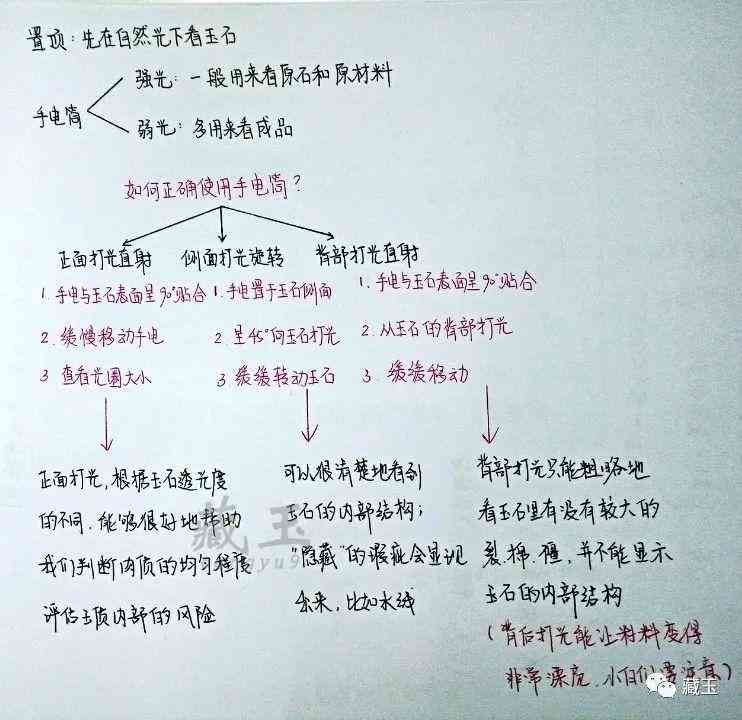 置顶：先在自然光下看玉石
强光：一般用来看原石和原材料
手电筒
弱光：多用来看成品
如何正确使用手电筒？
正面打光直射
1. 手电与玉石表面呈90°贴合
2. 缓慢移动手电
3 查看光圈大小
正面打光，根据玉石透光度
的不同，能够很好地帮助
我们判断肉质的均匀程度
评估玉质内部的风险
侧面打光旋转
1. 手电置于玉石侧面
2. 呈45°向玉石打光
3. 缓缓转动玉石
可以很清楚地看到
玉石的内部结构；
“隐藏”的瑕疵会显现
出来，比如水线
背部打光直射
1. 手电与玉石表面呈90°贴合
2. 从玉石的背部打光
3. 缓缓移动
背部打光只能粗略地
看玉石里有没有较大的
裂、棉、僵，并不能显示
玉石的内部结构
（背后打光能让料料变得
非常漂亮、小白们要注意）
藏玉
藏玉